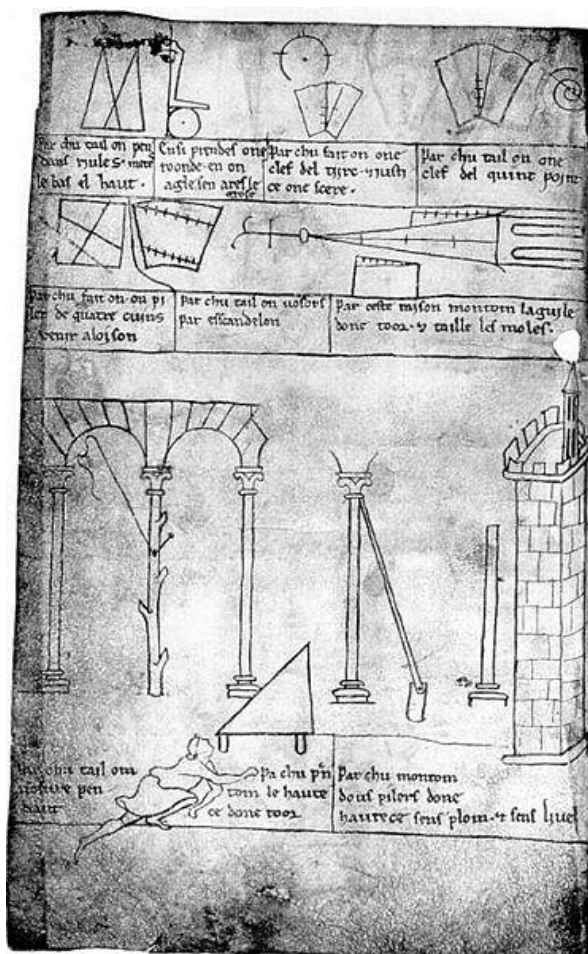 Par chu tail om pen
dans riules. metes
le bas el haut.
Ensi prendes one
roonde. en on
agle sen ares le
grose
Par chu fait on one
clef del tirc. ⁊ iusti
ce one scere.
Par chu tail on one
clef del quint point
Par chu fait on. on pi
ler de quatre cuins
venir aloison
Par chu tail on vosors
par escandelon
Par ceste raison montom laguile
done toor. ⁊ taille les moles.
Par chu tail om
vosure pen
dant
Pa chu pn
tom le haute
ce done toor
Par chu montom
dous pilers done
hautece sens plom. ⁊ sens livel